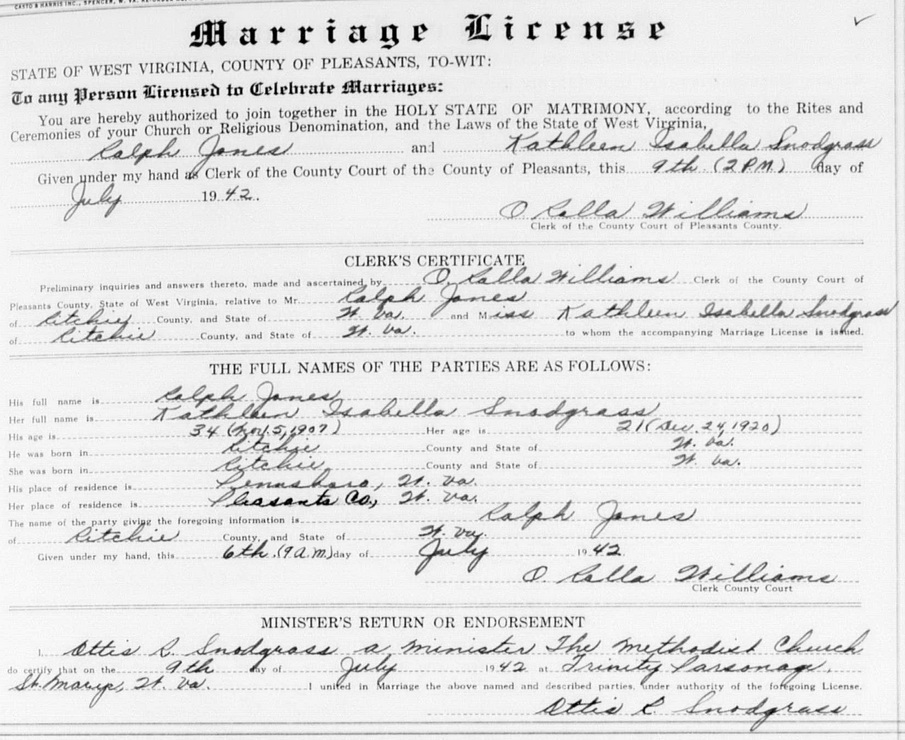 CASTO & HARRIS INC., SPENCER, W. VA.
Marriage License
STATE OF WEST VIRGINIA, COUNTY OF PLEASANTS, TO-WIT:
To any Person Licensed to Celebrate Marriages:
You are hereby authorized to join together in the HOLY STATE OF MATRIMONY, according to the Rites and
Ceremonies of your Church or Religious Denomination, and the Laws of the State of West Virginia,
Ralph Jones and Kathleen Isabella Snodgrass
Given under my hand as Clerk of the County Court of the County of Pleasants, this 9th (2 P.M.) day of
July 1942.
O Ralla Williams
Clerk of the County Court of Pleasants County.
CLERK'S CERTIFICATE
Preliminary inquiries and answers thereto, made and ascertained by O. Ralla Williams Clerk of the County Court of
Pleasants County, State of West Virginia, relative to Mr. Ralph Jones
of Ritchie County, and State of W. Va. and Miss Kathleen Isabella Snodgrass
of Ritchie County, and State of W. Va. to whom the accompanying Marriage License is issued.
THE FULL NAMES OF THE PARTIES ARE AS FOLLOWS:
His full name is Ralph Jones
Her full name is Kathleen Isabella Snodgrass
His age is 34 (Nov. 5, 1907) Her age is 21 (Dec. 24, 1920)
He was born in Ritchie County and State of W. Va.
She was born in Ritchie County and State of W. Va.
His place of residence is Pennsboro, W. Va.
Her place of residence is Pleasants Co., W. Va.
The name of the party giving the foregoing information is Ralph Jones
of Ritchie County, and State of W. Va.
Given under my hand, this 6th (9 A.M.) day of July 1942
O Ralla Williams
Clerk County Court
MINISTER'S RETURN OR ENDORSEMENT
I, Ottis R. Snodgrass a minister The Methodist Church
do certify that on the 9th day of July 1942 at Trinity Parsonage,
St. Marys, W. Va. I united in Marriage the above named and described parties, under authority of the foregoing License.
Ottis R. Snodgrass